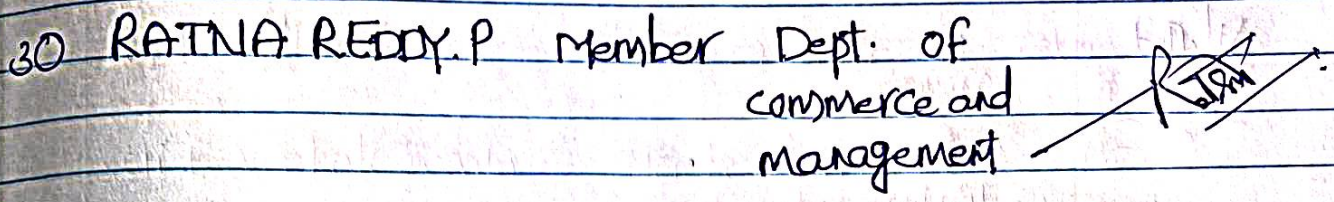 30 RATNA REDDY.P Member Dept. of
commerce and
management